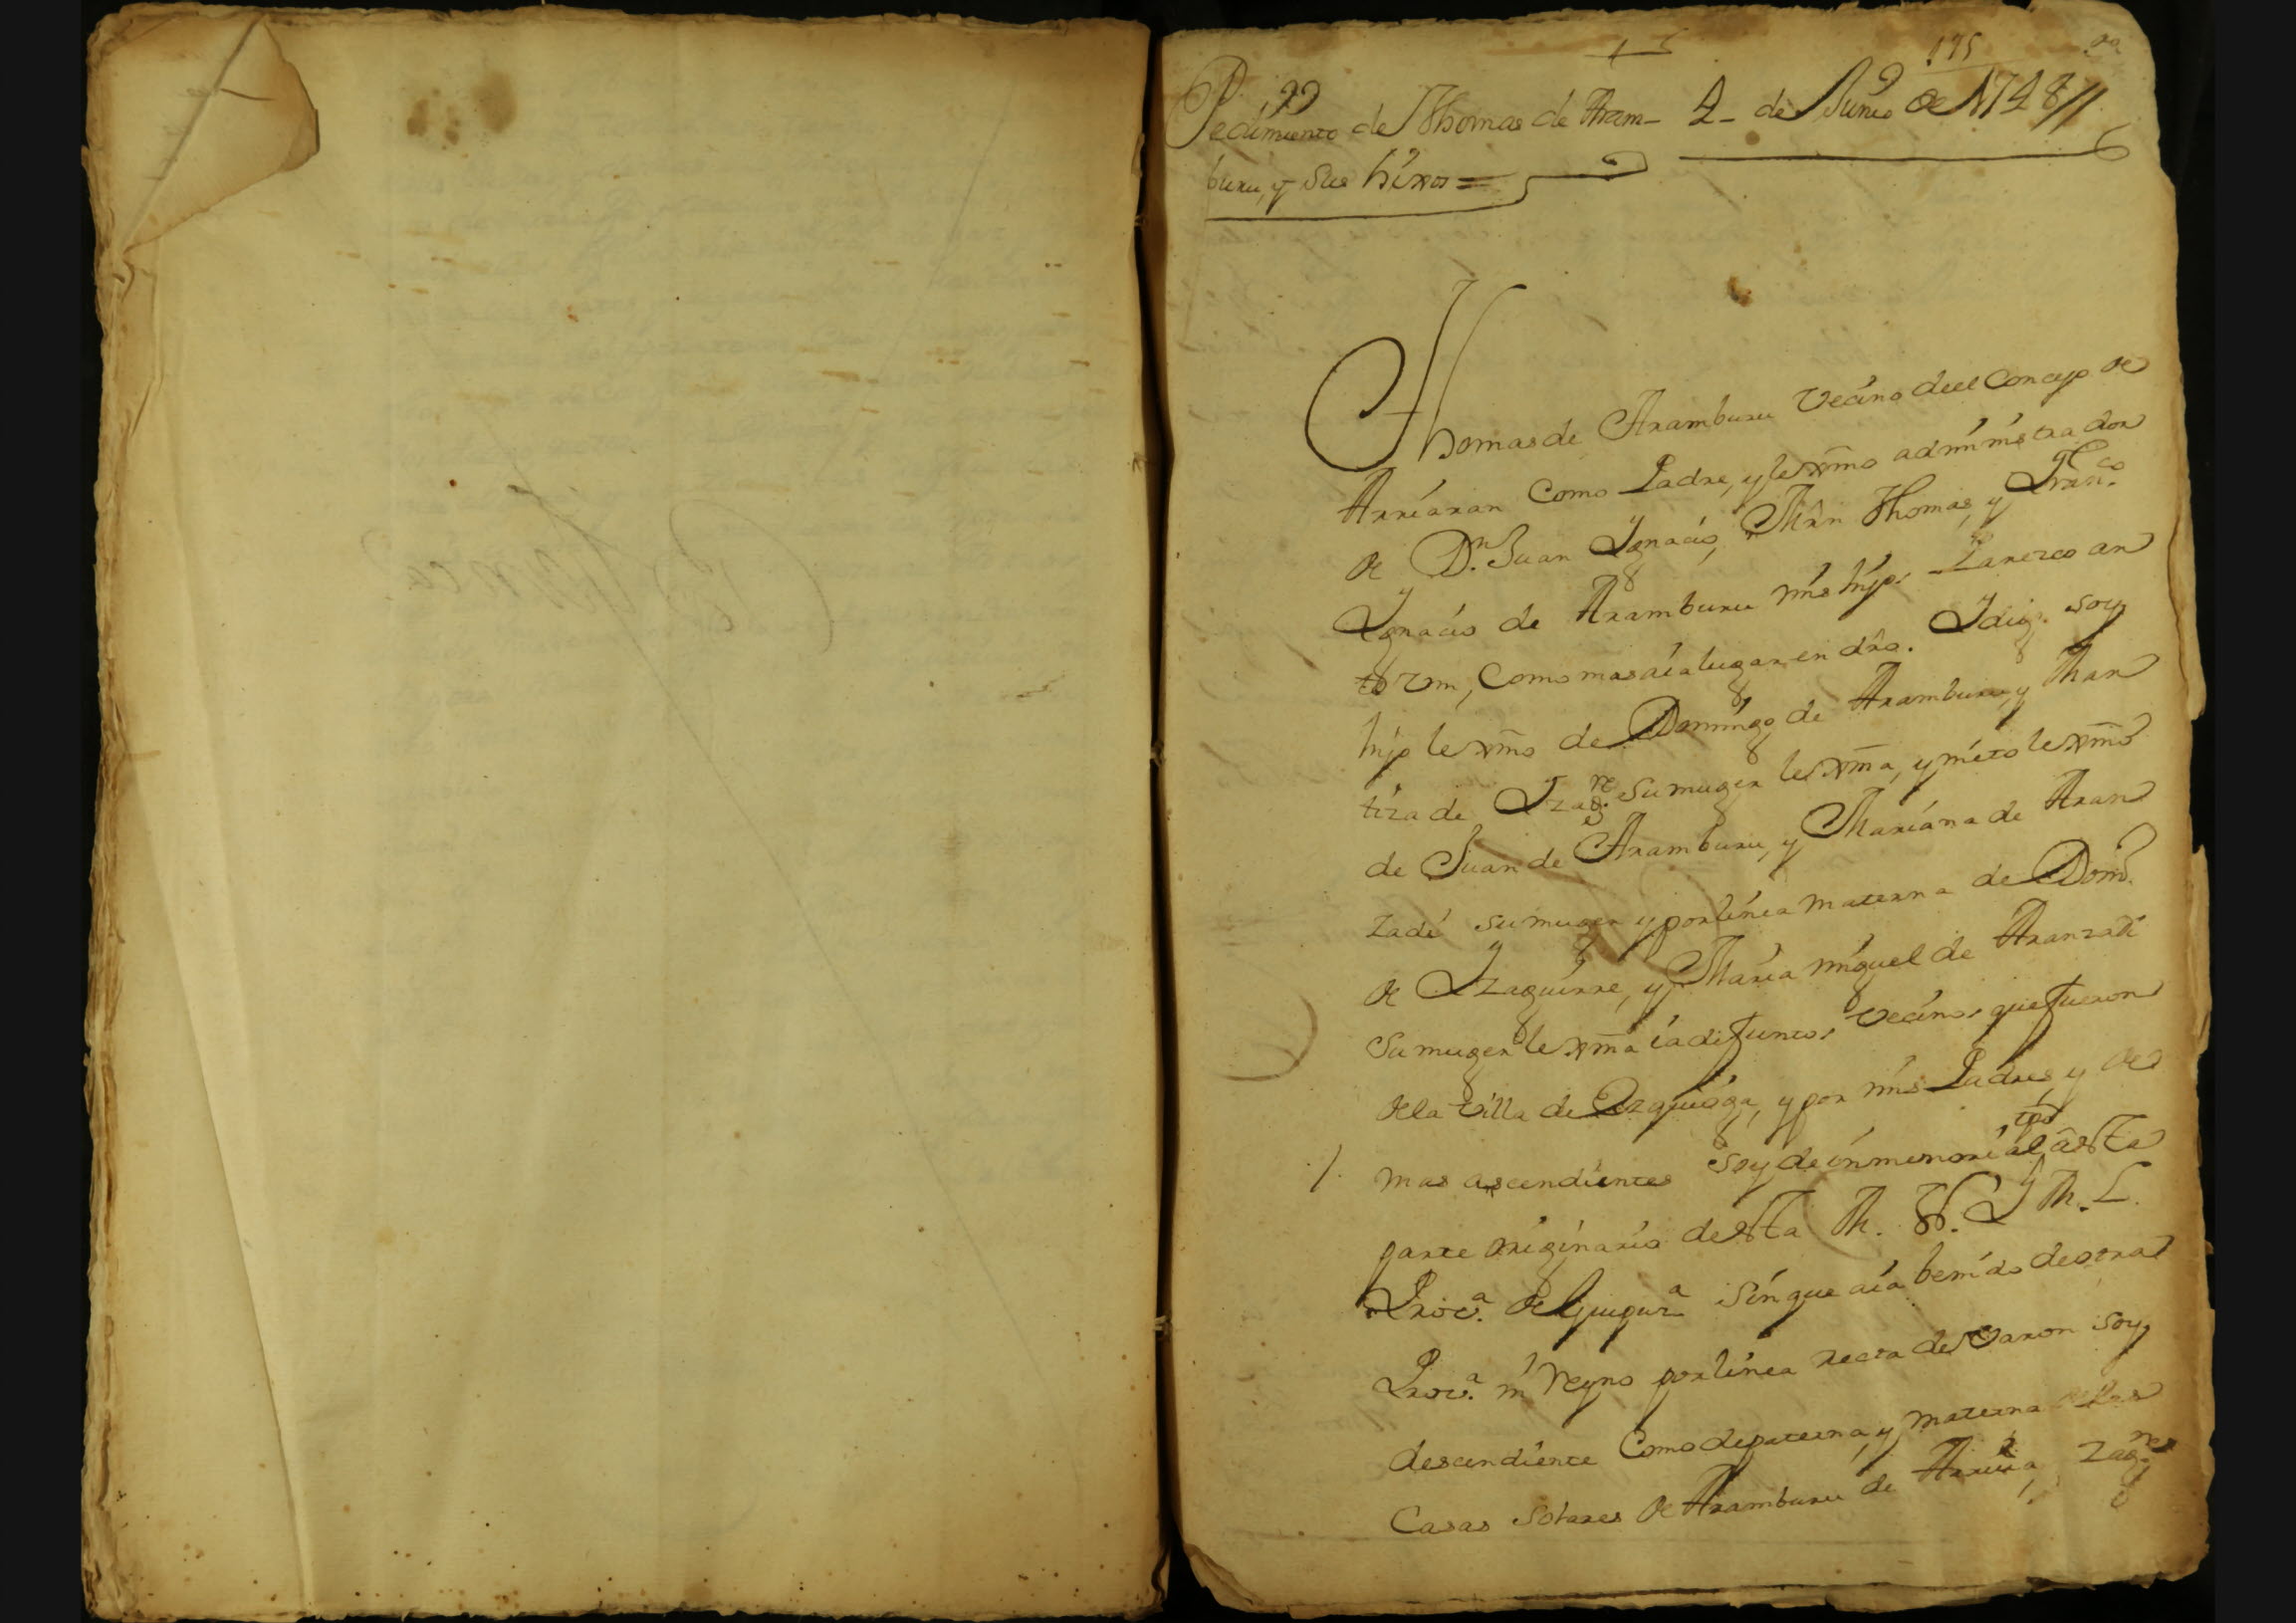 175
Pedimiento de Thomas de Aram-
buru, y sus hixos =
4 - de Junio de 1748 //
Thomas de Aramburu Vecino deel Concejo de
Arriaran Como Padre, y lexmo administrador
de Dn. Juan Ygnacio, Mrn Thomas, y Franco.
Ygnacio de Aramburu mis hijos Parezco an
te Vm, Como mas aia lugar en dro. Y digo. soy
hijo lexmo de Domingo de Aramburu, y Mar
tiza de Yzagre. su muger lexma, y nieto lexmo
de Juan de Aramburu, y Mariana de Aran
zadi su muger y por linea materna de Domo.
de Yzaguirre, y Maria miguel de Aranzadi
su muger lexma ia difuntos Vecinos que fueron
de la Villa de Ezquioga, y por mis Padres, y de
mas ascendientes soy de inmemorial tpo a esta
parte originario desta M. N. Y M. L.
Prova. de Guipuza sin que aia benido de otra
Prova. ni Reyno por linea recta de Varon soy
descendiente Como de paterna, y materna de las
Casas Solares de Aramburu de Zagres